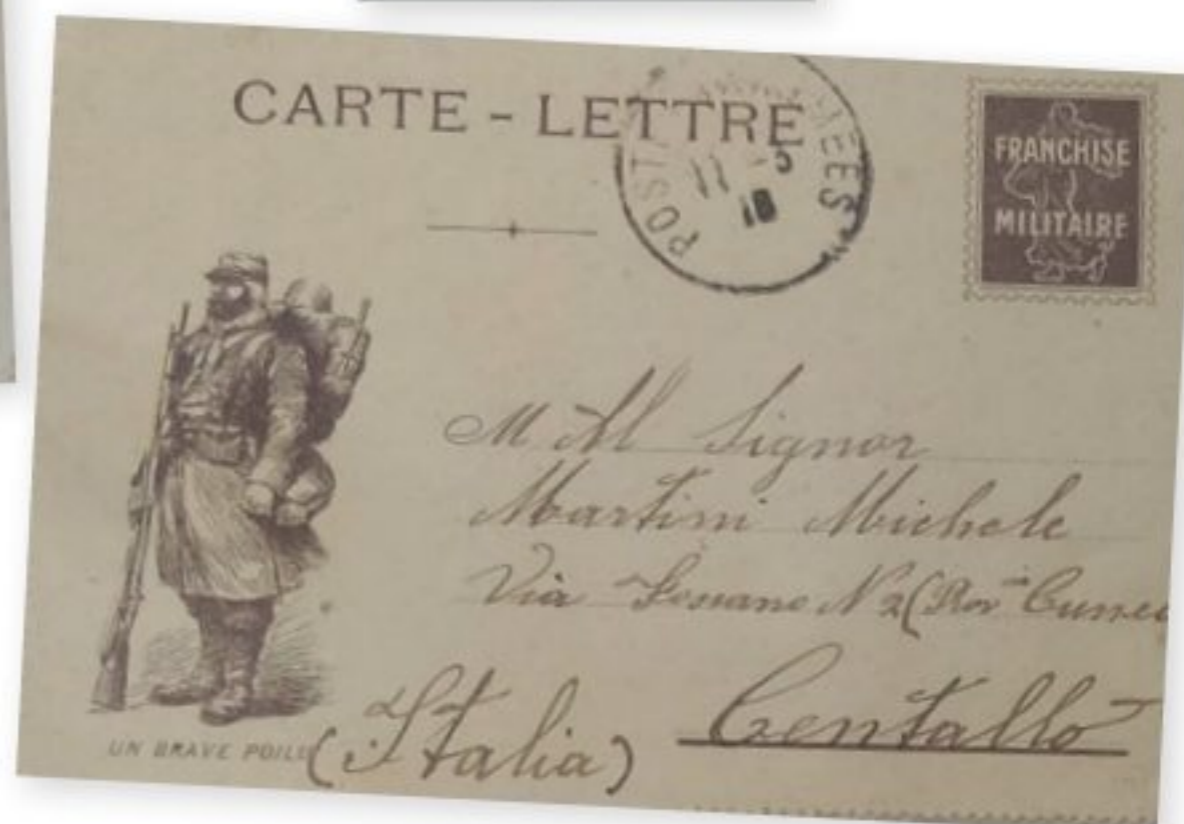 CARTE - LETTRE
POST
ÉES
11
5
18
FRANCHISE
MILITAIRE
M Al Signor
Martini Michele
Via N 2 (Rov Cuneo
(Italia) Centallo
UN BRAVE POILU